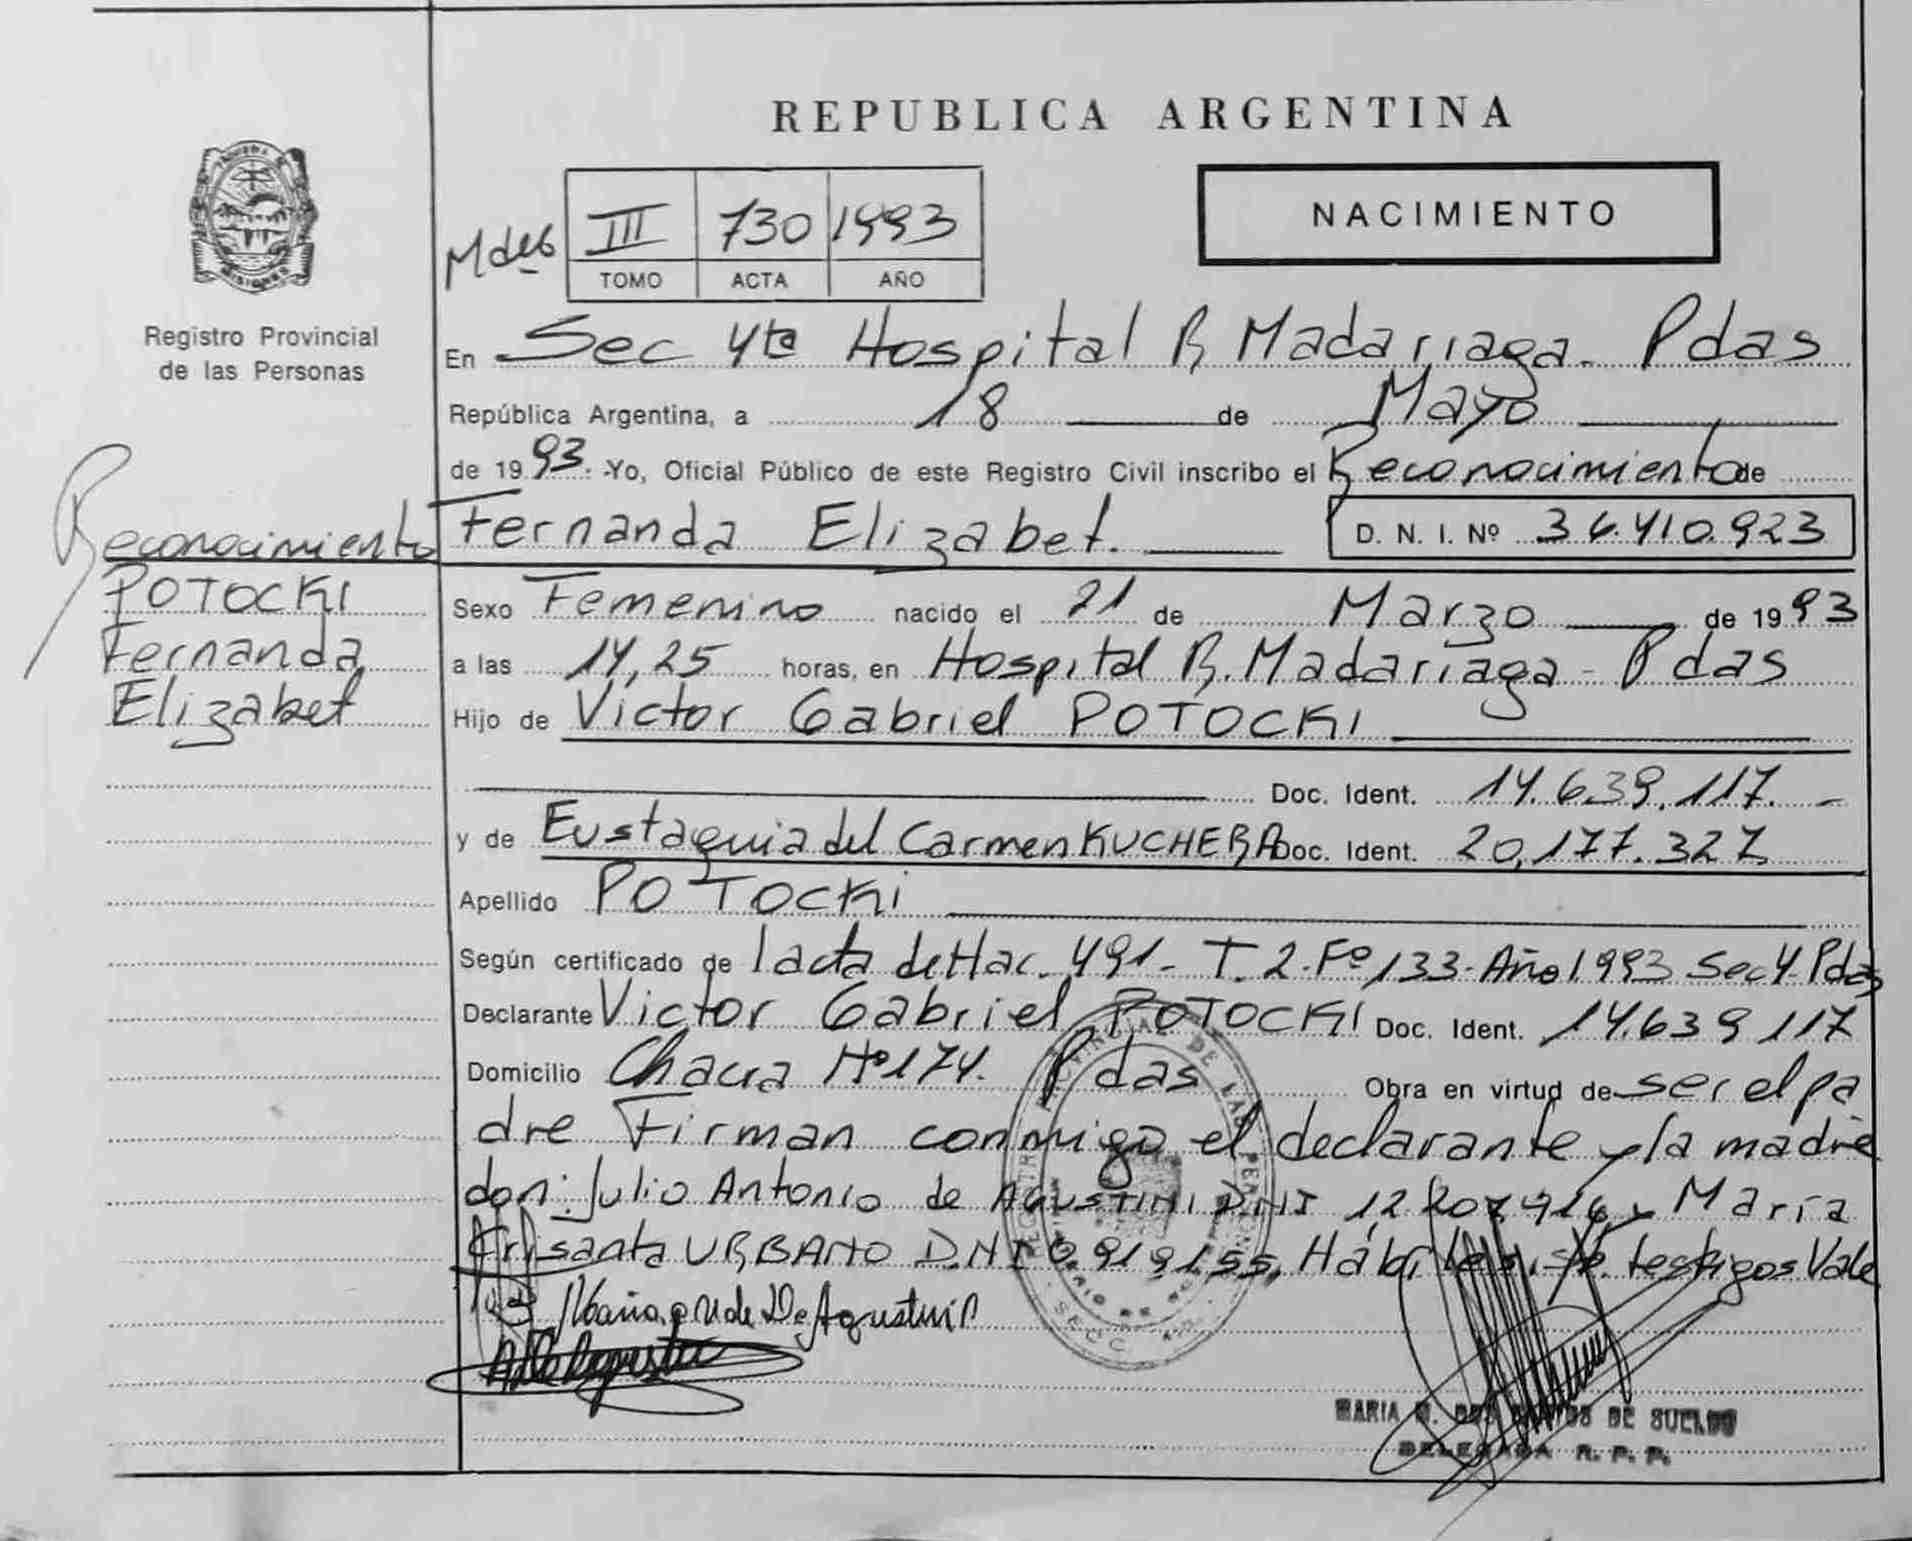 REPUBLICA ARGENTINA
NACIMIENTO
Mdes III 730 1993
TOMO ACTA AÑO
Registro Provincial
de las Personas
En Sec 4ta Hospital R Madariaga - Pdas
República Argentina, a 18 de Mayo
de 1993. Yo, Oficial Público de este Registro Civil inscribo el Reconocimiento de
Fernanda Elizabet. D. N. I. Nº 36.410.923
Reconocimiento
POTOCKI
Fernanda
Elizabet
Sexo Femenino nacido el 21 de Marzo de 1993
a las 14,25 horas, en Hospital R. Madariaga - Pdas
Hijo de Victor Gabriel POTOCKI
Doc. Ident. 14.639.117.-
y de Eustaquia del Carmen KUCHERA Doc. Ident. 20.177.327
Apellido POTOCKI
Según certificado de 1 acta de Nac. 491 - T. 2 - Fº 133 - Año 1993 Sec 4 - Pdas
Declarante Victor Gabriel POTOCKI Doc. Ident. 14.639 117
Domicilio Chacra Nº 174. Pdas Obra en virtud de ser el pa
dre Firman conmigo el declarante y la madre
don: Julio Antonio de AGUSTINI D.N.I y María
Crisanta URBANO D.N.I Hábiles testigos Vale
De Agustini
MARIA DE SUELDO
DELEGADA R. P. P.